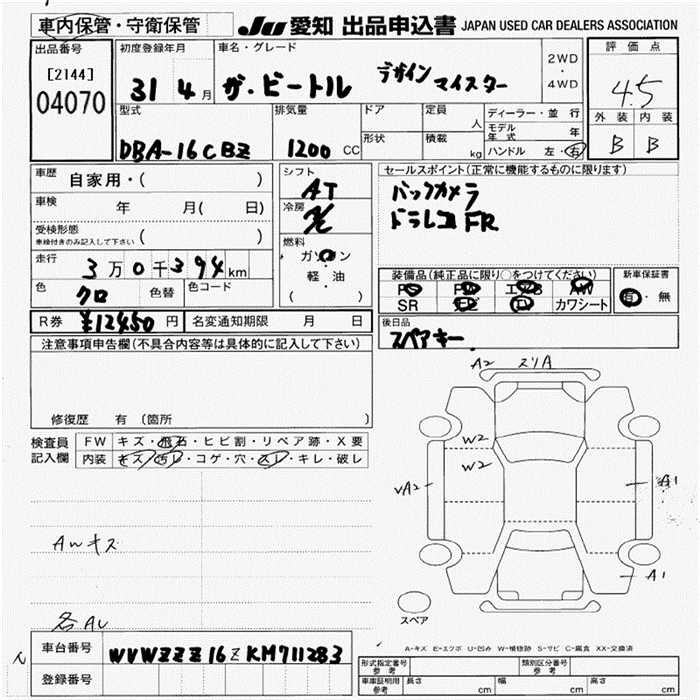 車内保管・守衛保管
JU 愛知 出品申込書 JAPAN USED CAR DEALERS ASSOCIATION
出品番号
[2144]
04070
初度登録年月
31 4月
車名・グレード
ザ・ビートル デザインマイスター
2WD
・
4WD
評価点
4.5
外装 内装
B B
型式
DBA-16CBZ
排気量
1200 CC
ドア
形状
定員
人
積載
kg
ディーラー・並行
モデル年式 年
ハンドル 左・右
車歴 自家用・( )
車検 年 月( 日)
受検形態
車検付きのみ記入して下さい ( )
走行 3万0千394km
色 クロ 色替
色コード
シフト
AT
冷房
燃料
ガソリン
・
軽・油
( )
セールスポイント(正常に機能するものに限ります)
バックカメラ
ドラレコFR
装備品(純正品に限り○をつけてください)
PS PW エアB AW
SR TV カワシート
新車保証書
有・無
後日品
スペアキー
R券 ¥12450円
名変通知期限 月 日
注意事項申告欄(不具合内容等は具体的に記入して下さい)
修復歴 有 (箇所
検査員
記入欄
FW キズ・飛石・ヒビ割・リペア跡・X要
内装 キズ・汚レ・コゲ・穴・スレ・キレ・破レ
AWキズ
各AU
A2 スリA
W2
W2
VA2
A1
A1
スペア
A-キズ E-エクボ U-凹み W-補修跡 S-サビ C-腐食 XX-交換済
車台番号 WVWZZZ16ZKM711283
登録番号
形式指定番号
参考
類別区分番号
参考
車庫証明用
参考
長さ cm
幅 cm
高さ cm